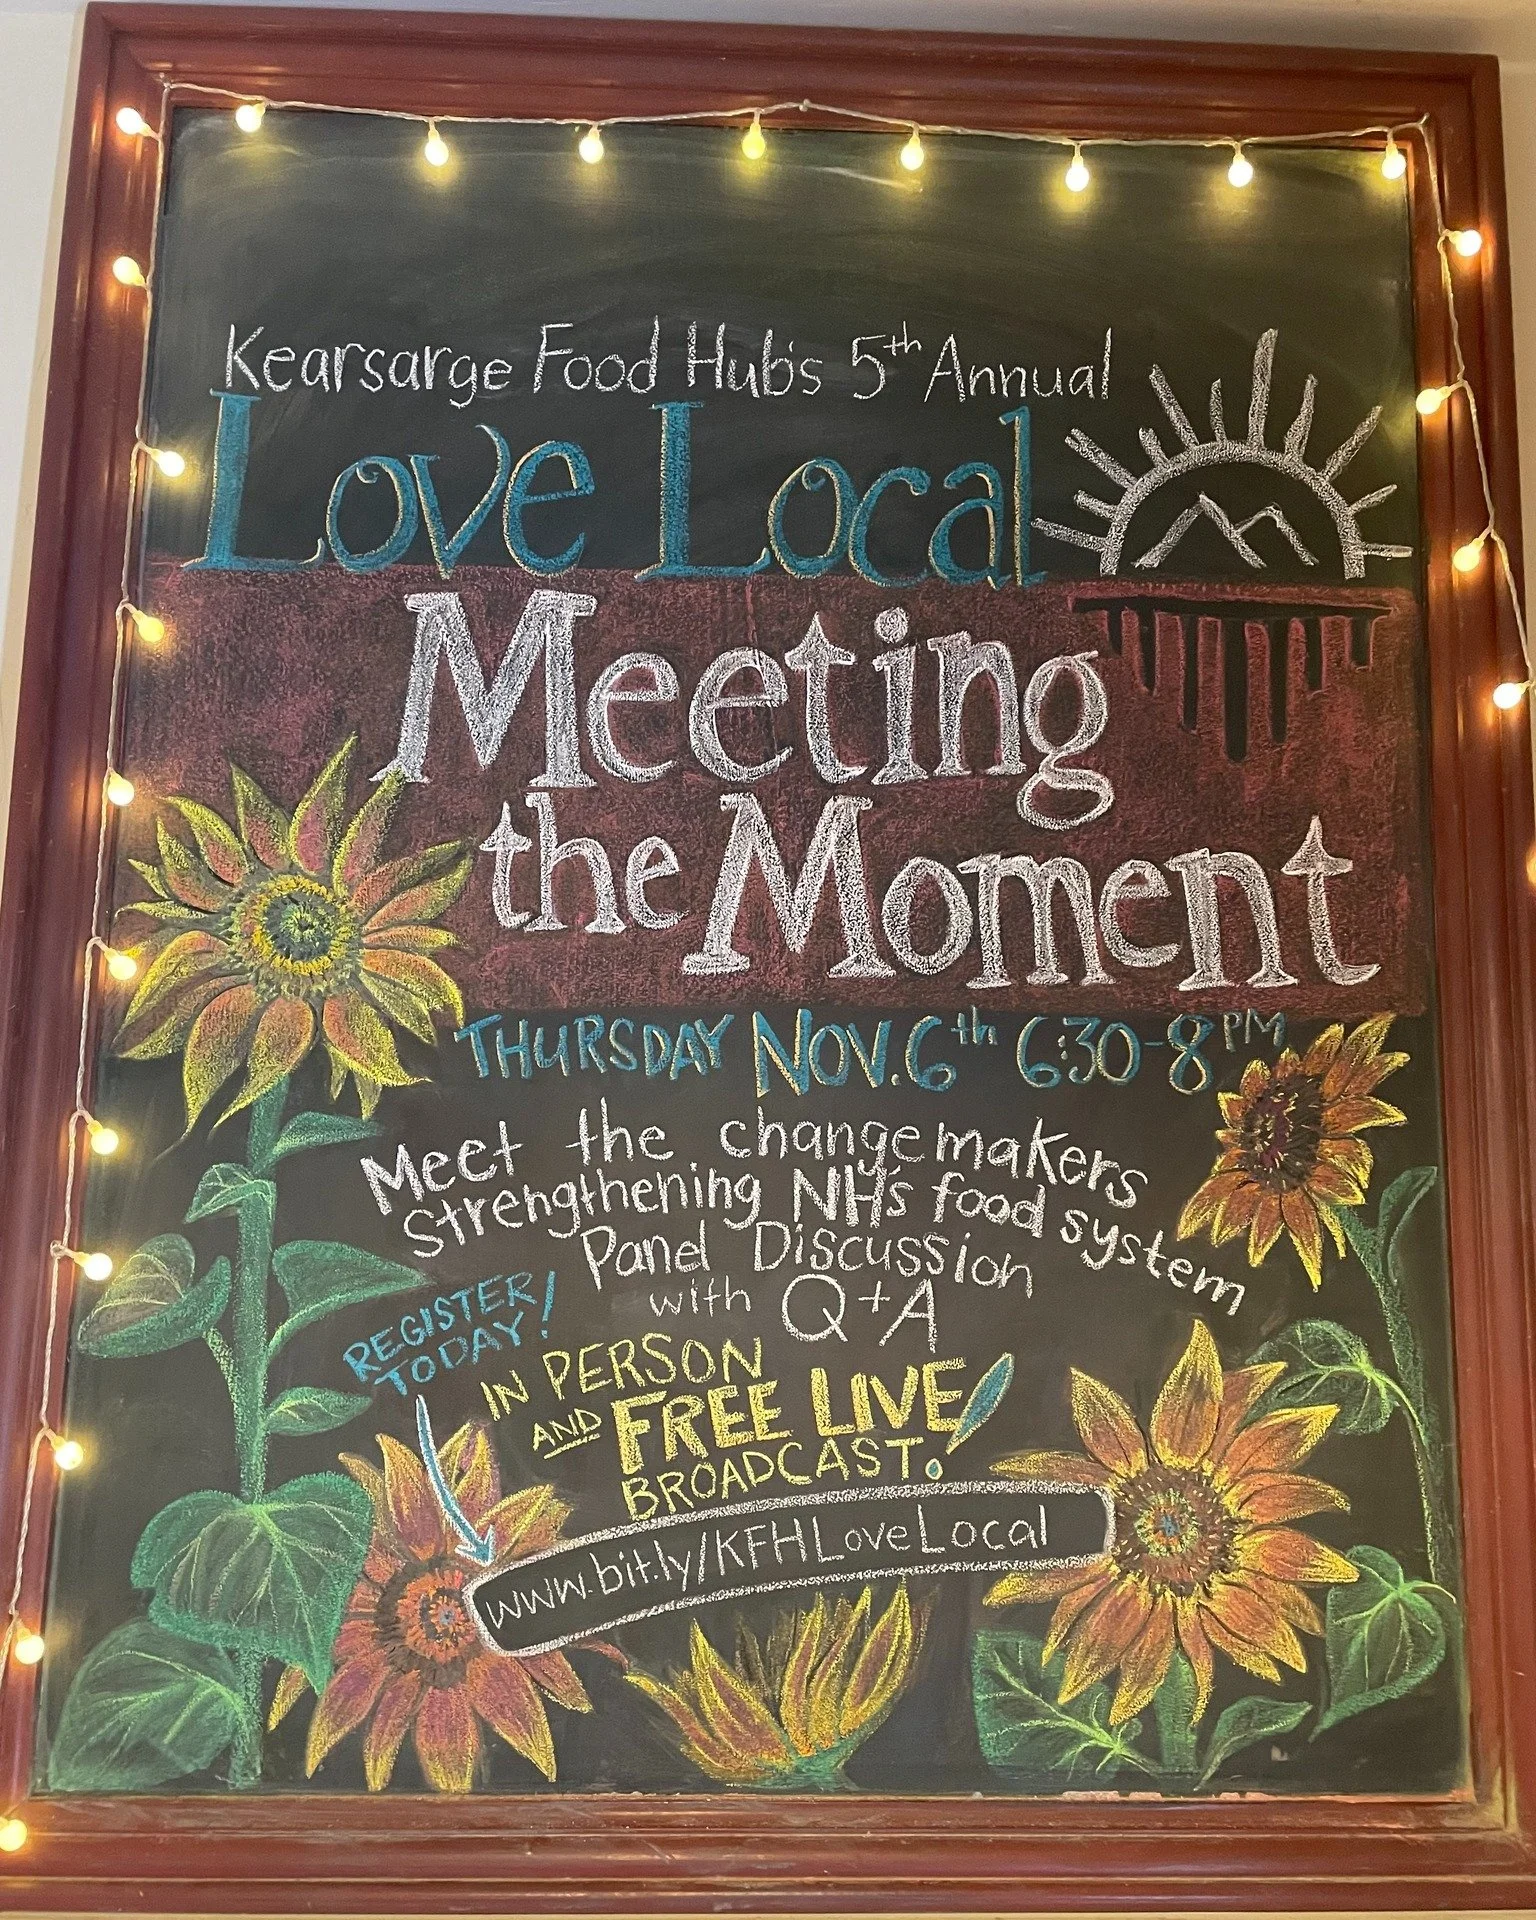 Kearsarge Food Hub's 5th Annual
Love Local
Meeting
the Moment
THURSDAY NOV. 6th 6:30-8PM
Meet the changemakers
Strengthening NH's food system
Panel Discussion
with Q+A
REGISTER
TODAY!
IN PERSON
AND FREE LIVE!
BROADCAST
www.bit.ly/KFHLoveLocal